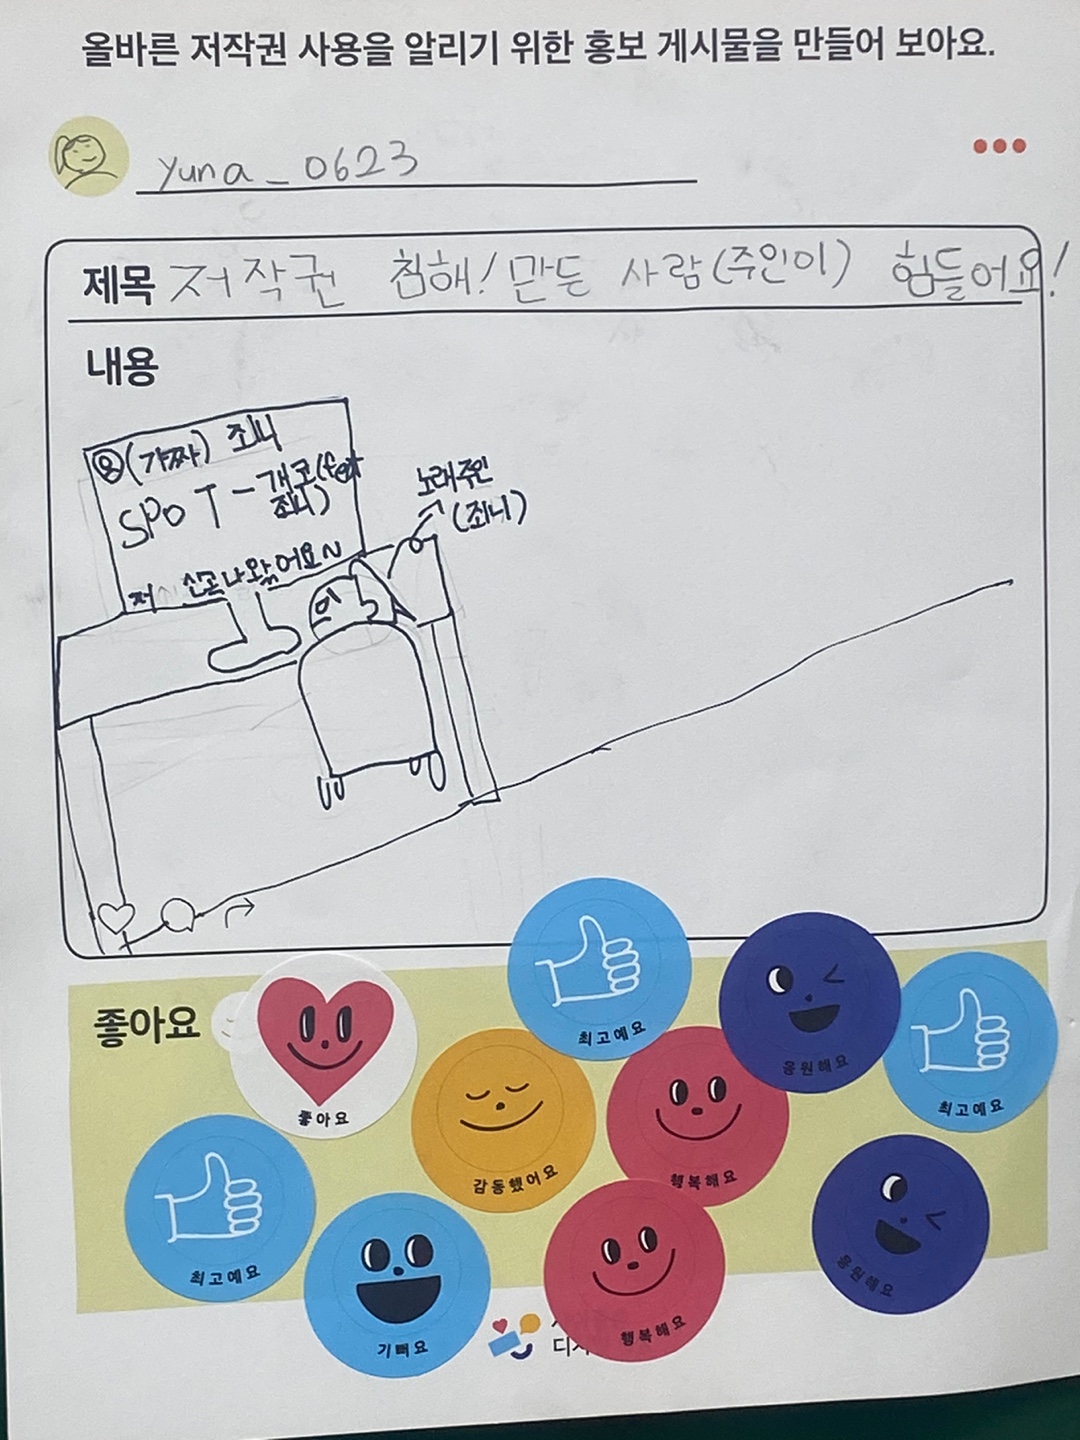 올바른 저작권 사용을 알리기 위한 홍보 게시물을 만들어 보아요.
yuna_0623
제목 저작권 침해! 만든 사람(주인이) 힘들어요!
내용
(가짜) 죄니
SPOT - 개코(feat
죄니)
저 신곡 나왔어요~
노래주인
(죄니)
좋아요
좋아요
최고예요
응원해요
최고예요
감동했어요
행복해요
최고예요
기뻐요
행복해요
응원해요